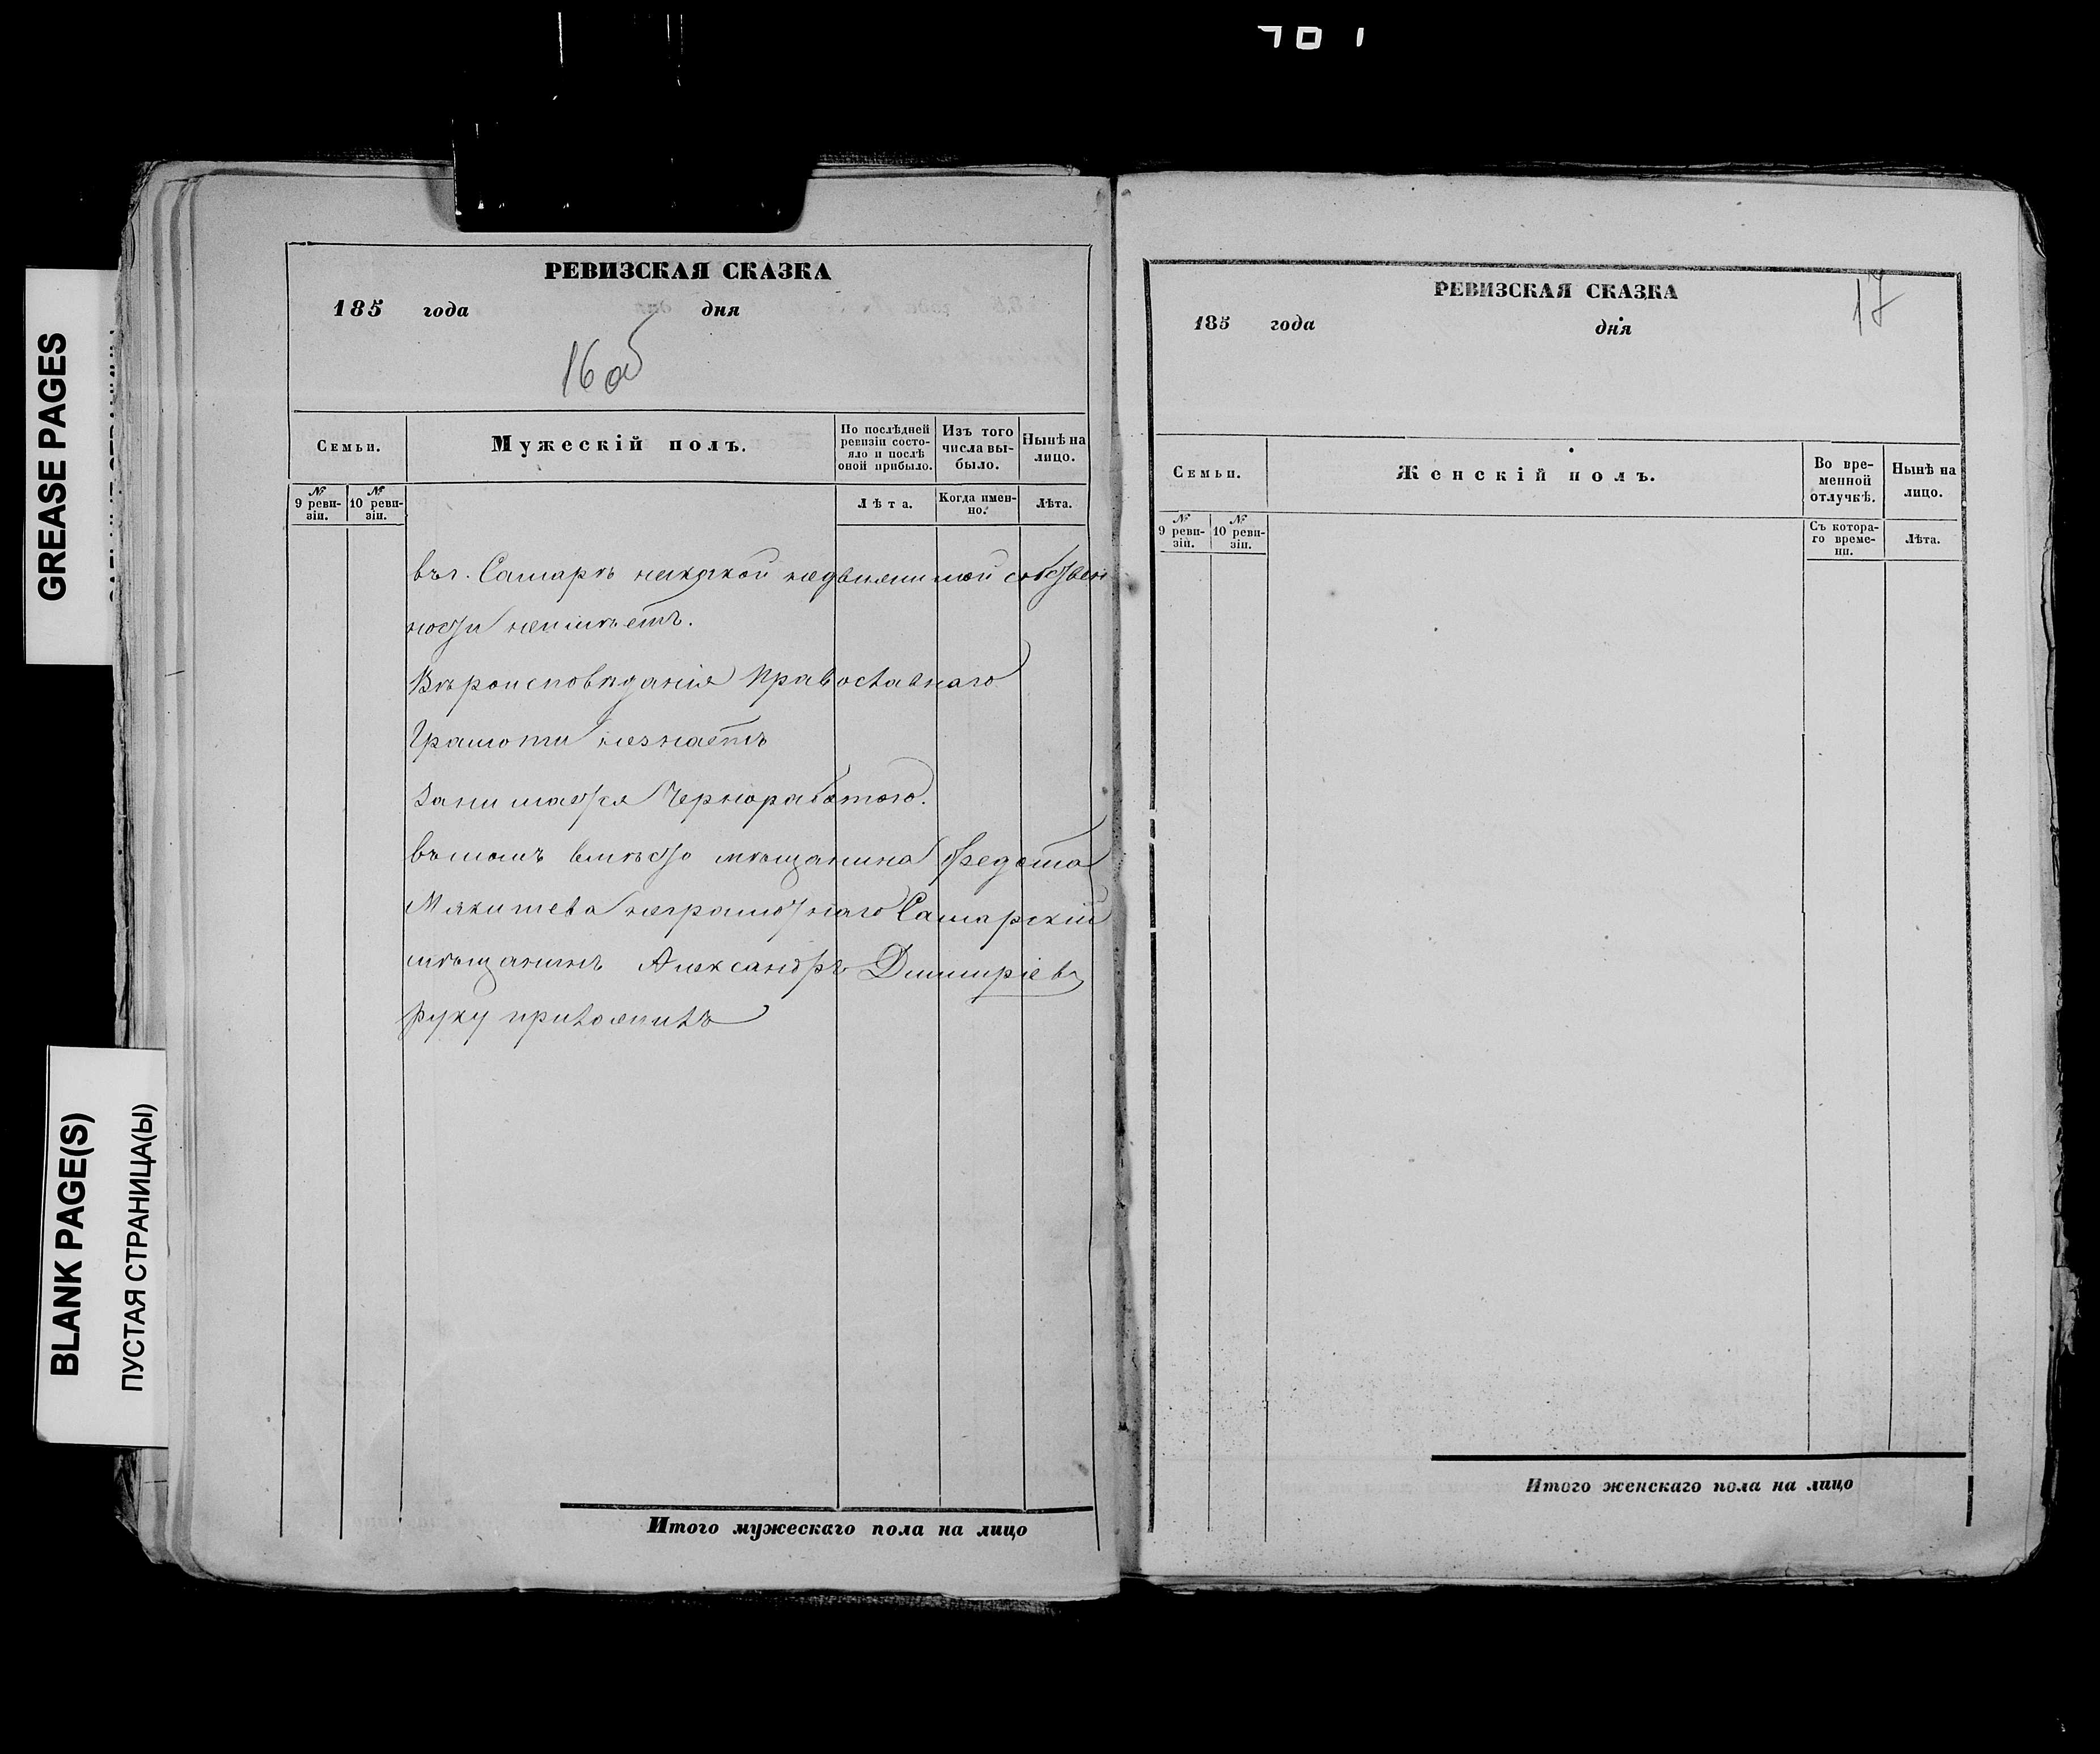 701
GREASE PAGES
BLANK PAGE(S)
ПУСТАЯ СТРАНИЦА(Ы)
РЕВИЗСКАЯ СКАЗКА
185 года дня
16 об
Семьи.
Мужескій полъ.
По послѣдней
ревизіи состо-
яло и послѣ
оной прибыло.
Изъ того
числа вы-
было.
Нынѣ на
лицо.
№
9 реви-
зіи.
№
10 реви-
зіи.
Лѣта.
Когда имен-
но.
Лѣта.
въ г. Самарѣ никакой недвижимой собствен
ности неимѣетъ.
Вѣроисповѣданія Православнаго
Грамоти незнаетъ
Занимается Чернороботою.
въ томъ вмѣсто мѣщанина Федота
Мякишева неграмотнаго Самарскій
мѣщанинъ Александръ Димитріевъ
руку приложилъ
Итого мужескаго пола на лицо
РЕВИЗСКАЯ СКАЗКА
17
185 года дня
Семьи.
Женскій полъ.
Во вре-
менной
отлучкѣ.
Нынѣ на
лицо.
№
9 реви-
зіи.
№
10 реви-
зіи.
Съ котора-
го време-
ни.
Лѣта.
Итого женскаго пола на лицо